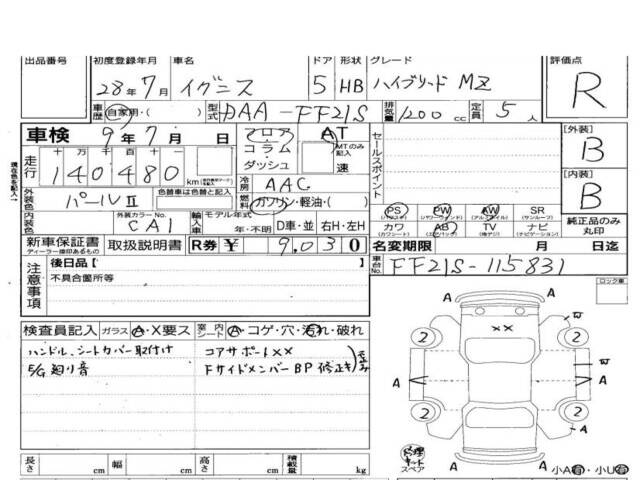 出品番号 初度登録年月 車名 ドア 形状 グレード 評価点
28年7月 イグニス 5 HB ハイブリード MZ R
車歴 自家用・( ) 型式 DAA-FF21S 排気量 1200 cc 定員 5 人
車検 9年7月 日 フロア コラム・ダッシュ AT MTのみ記入 速
セールスポイント
[外装] B
走行 十万 万 千 百 十 一
140480 km
現在色を記入→
外装色 パールⅡ 色替車は色替と記入
冷房 AAC
燃料 ガソリン・軽油・( )
[内装] B
内装色 外装カラーNo. CA1 輸入車 モデル年式 年・不明 D車・並 右H・左H
PS PW AW SR
(パワーウィンドウ) (アルミホイル) (サンルーフ)
カワ AB TV ナビ
(カワシート) (エアバッグ) (地デジ) (ナビゲーション)
純正品のみ丸印
新車保証書 ディーラー様印のあるもの 取扱説明書 R券 ¥ 9,030
名変期限 月 日迄
注意事項 後日品[ ]
不具合箇所等
車台No. FF21S-115831
ロック車
検査員記入 ガラス A・X要ス 室内シート A・コゲ・穴・汚れ・破れ
ハンドル、シートカバー取付け コアサポートXX
E/G廻り音 FサイドメンバーBP修正キ
XX
2 2
A A A
2 2
A A A
スペア
小A有・小U有
長さ cm 幅 cm 高さ cm 積載量 kg